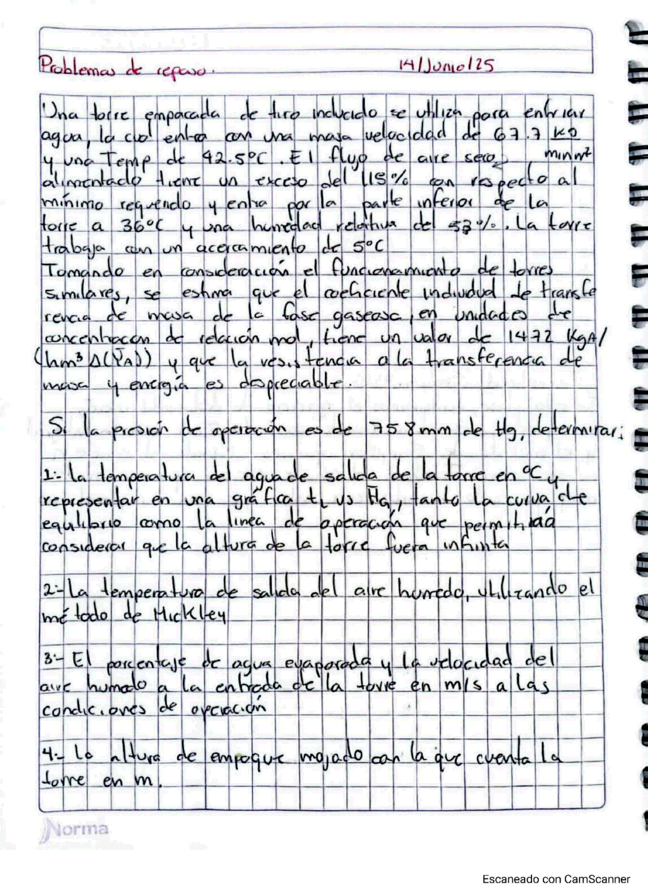 Problemas de repaso.
14/Junio/25
Una torre empacada de tiro inducido se utiliza para enfriar
agua, la cual entra con una masa velocidad de 67.7 kg
y una Temp de 42.5°C. El flujo de aire seco, minm²
alimentado tiene un exceso del 115% con respecto al
mínimo requerido y entra por la parte inferior de la
torre a 36°C y una humedad relativa del 53%. La torre
trabaja con un acercamiento de 5°C
Tomando en consideración el funcionamiento de torres
similares, se estima que el coeficiente individual de transfe
rencia de masa de la fase gaseosa, en unidades de
concentracion de relación mol, tiene un valor de 1472 KgA/
(hm³ Δ(ȲA)) y que la resistencia a la transferencia de
masa y energía es despreciable.
Si la presión de operación es de 758mm de Hg, determinar:
1.- La temperatura del agua de salida de la torre en °C y
representar en una gráfica tL vs H̄G, tanto la curva de
equilibrio como la linea de operación que permitiría
considerar que la altura de la torre fuera infinita
2.- La temperatura de salida del aire humedo, utilizando el
método de Mickley
3.- El porcentaje de agua evaporada y la velocidad del
aire humedo a la entrada de la torre en m/s a las
condiciones de operación
4.- La altura de empaque mojado con la que cuenta la
torre en m.
Norma
Escaneado con CamScanner